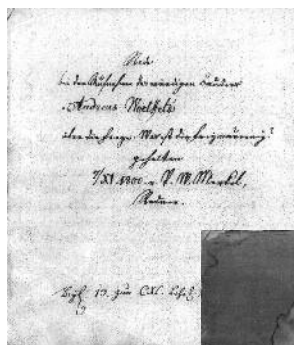 Rede
bei der Aufnahme des würdigen Bruders
Andreas
über die Frage: Was ist die Freimaurerei?
gehalten
7/XI. 1800 v. P. W. Merkel,
Redner.
Beyl. 13. zum CXI.